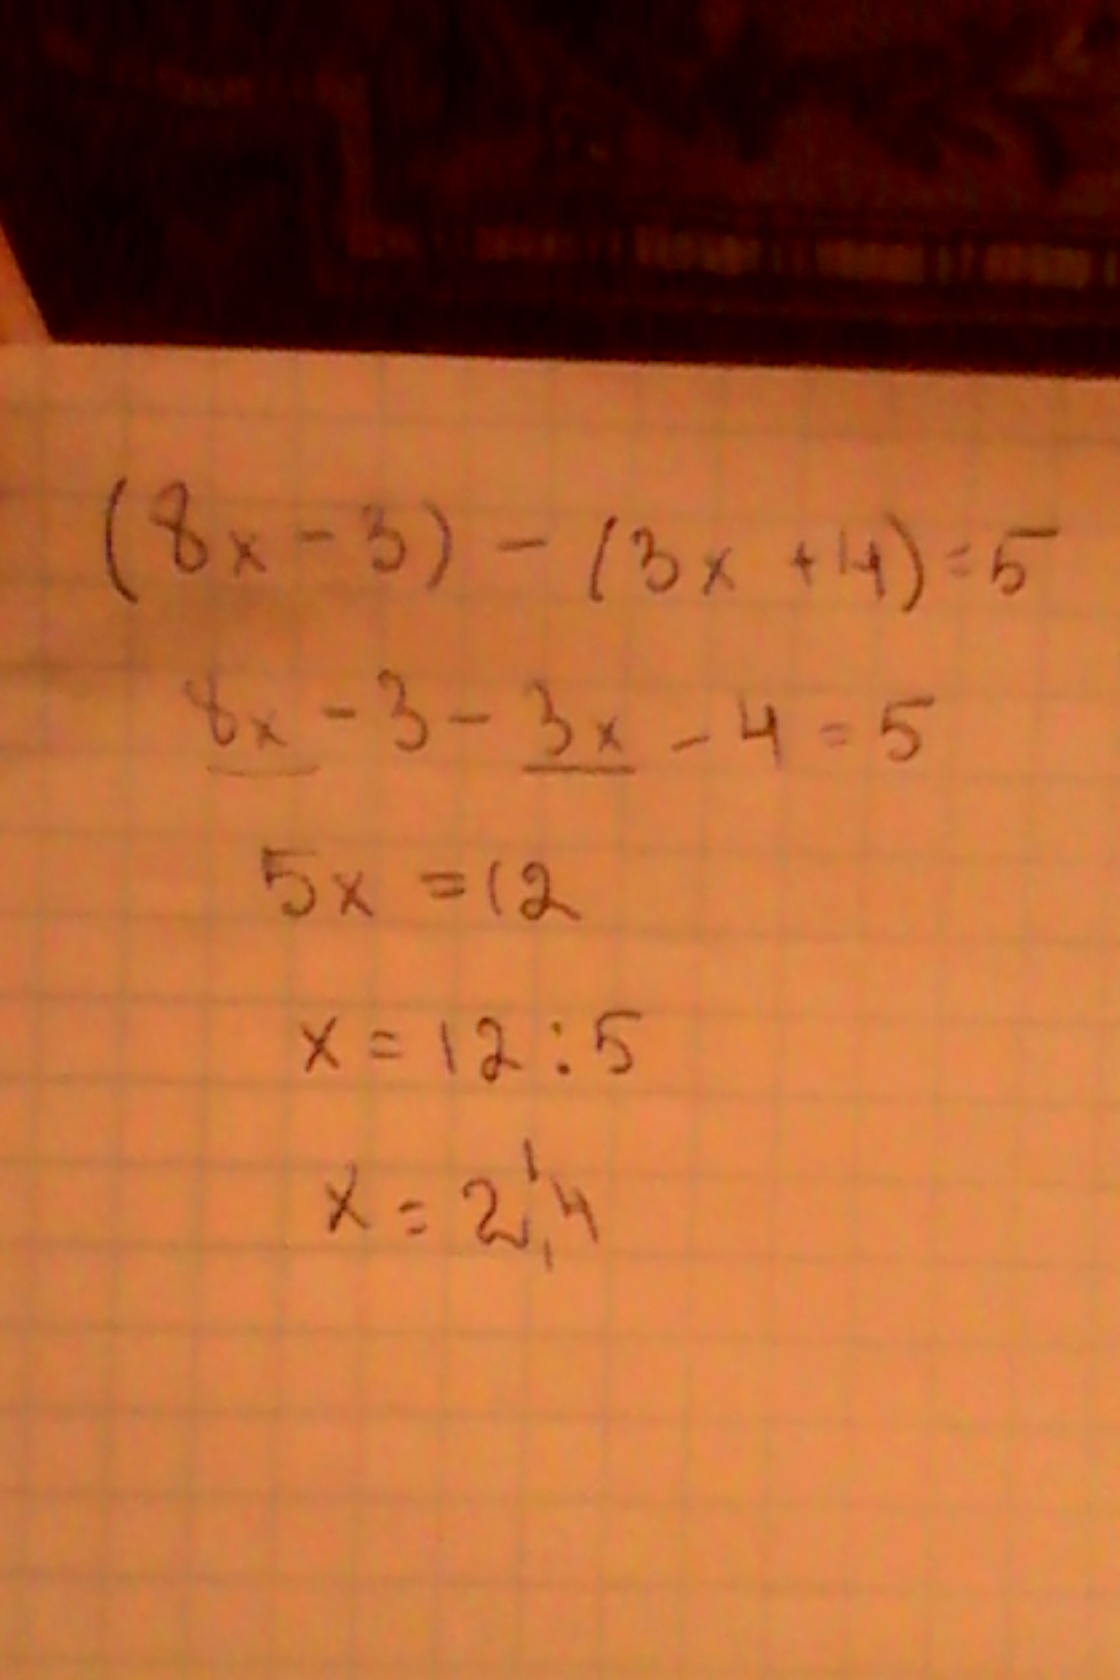 (8x - 3) - (3x + 4) = 5
8x - 3 - 3x - 4 = 5
5x = 12
x = 12 : 5
x = 2,4